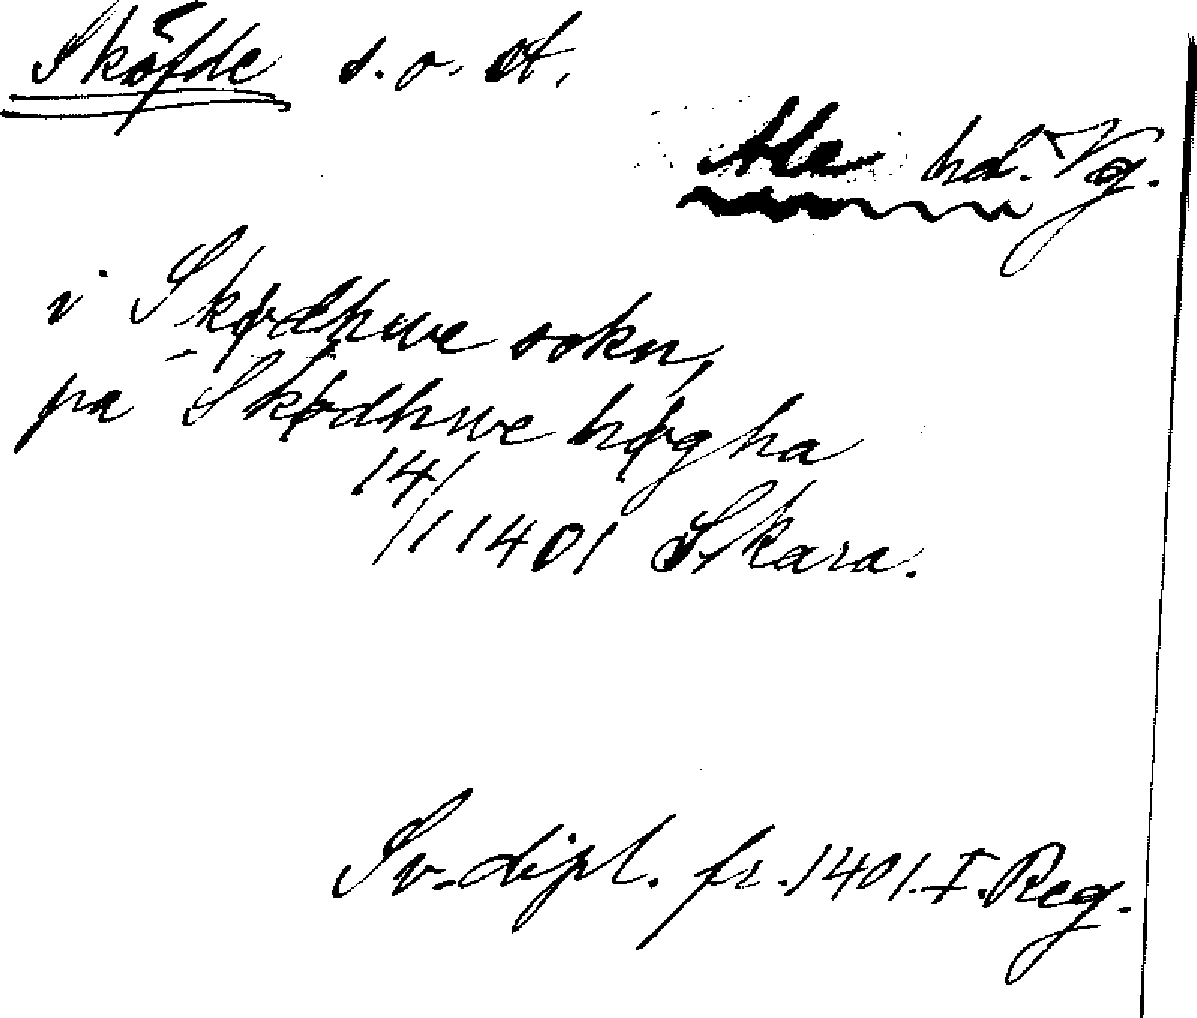 Sköfde s. o. st.
Ale hd. Vg.
i Skødhwe sokn,
pa Skødhwe høgha
14/1 1401 Skara.
Sv. dipl. fr. 1401. I. Reg.